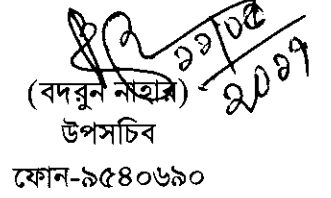 ১১/০৫
২০১৭
(বদরুন নাহার)
উপসচিব
ফোন-৯৫৪০৬৯০